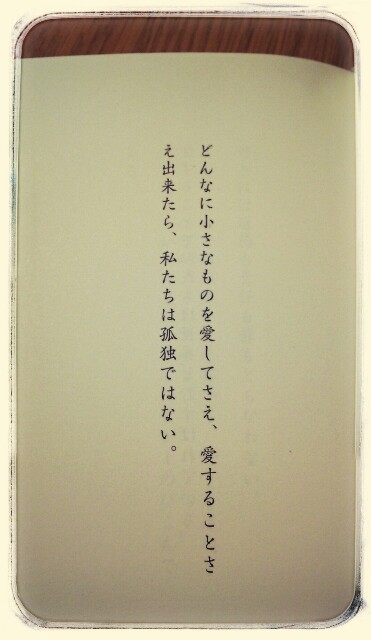 どんなに小さなものを愛してさえ、愛することさ
え出来たら、私たちは孤独ではない。